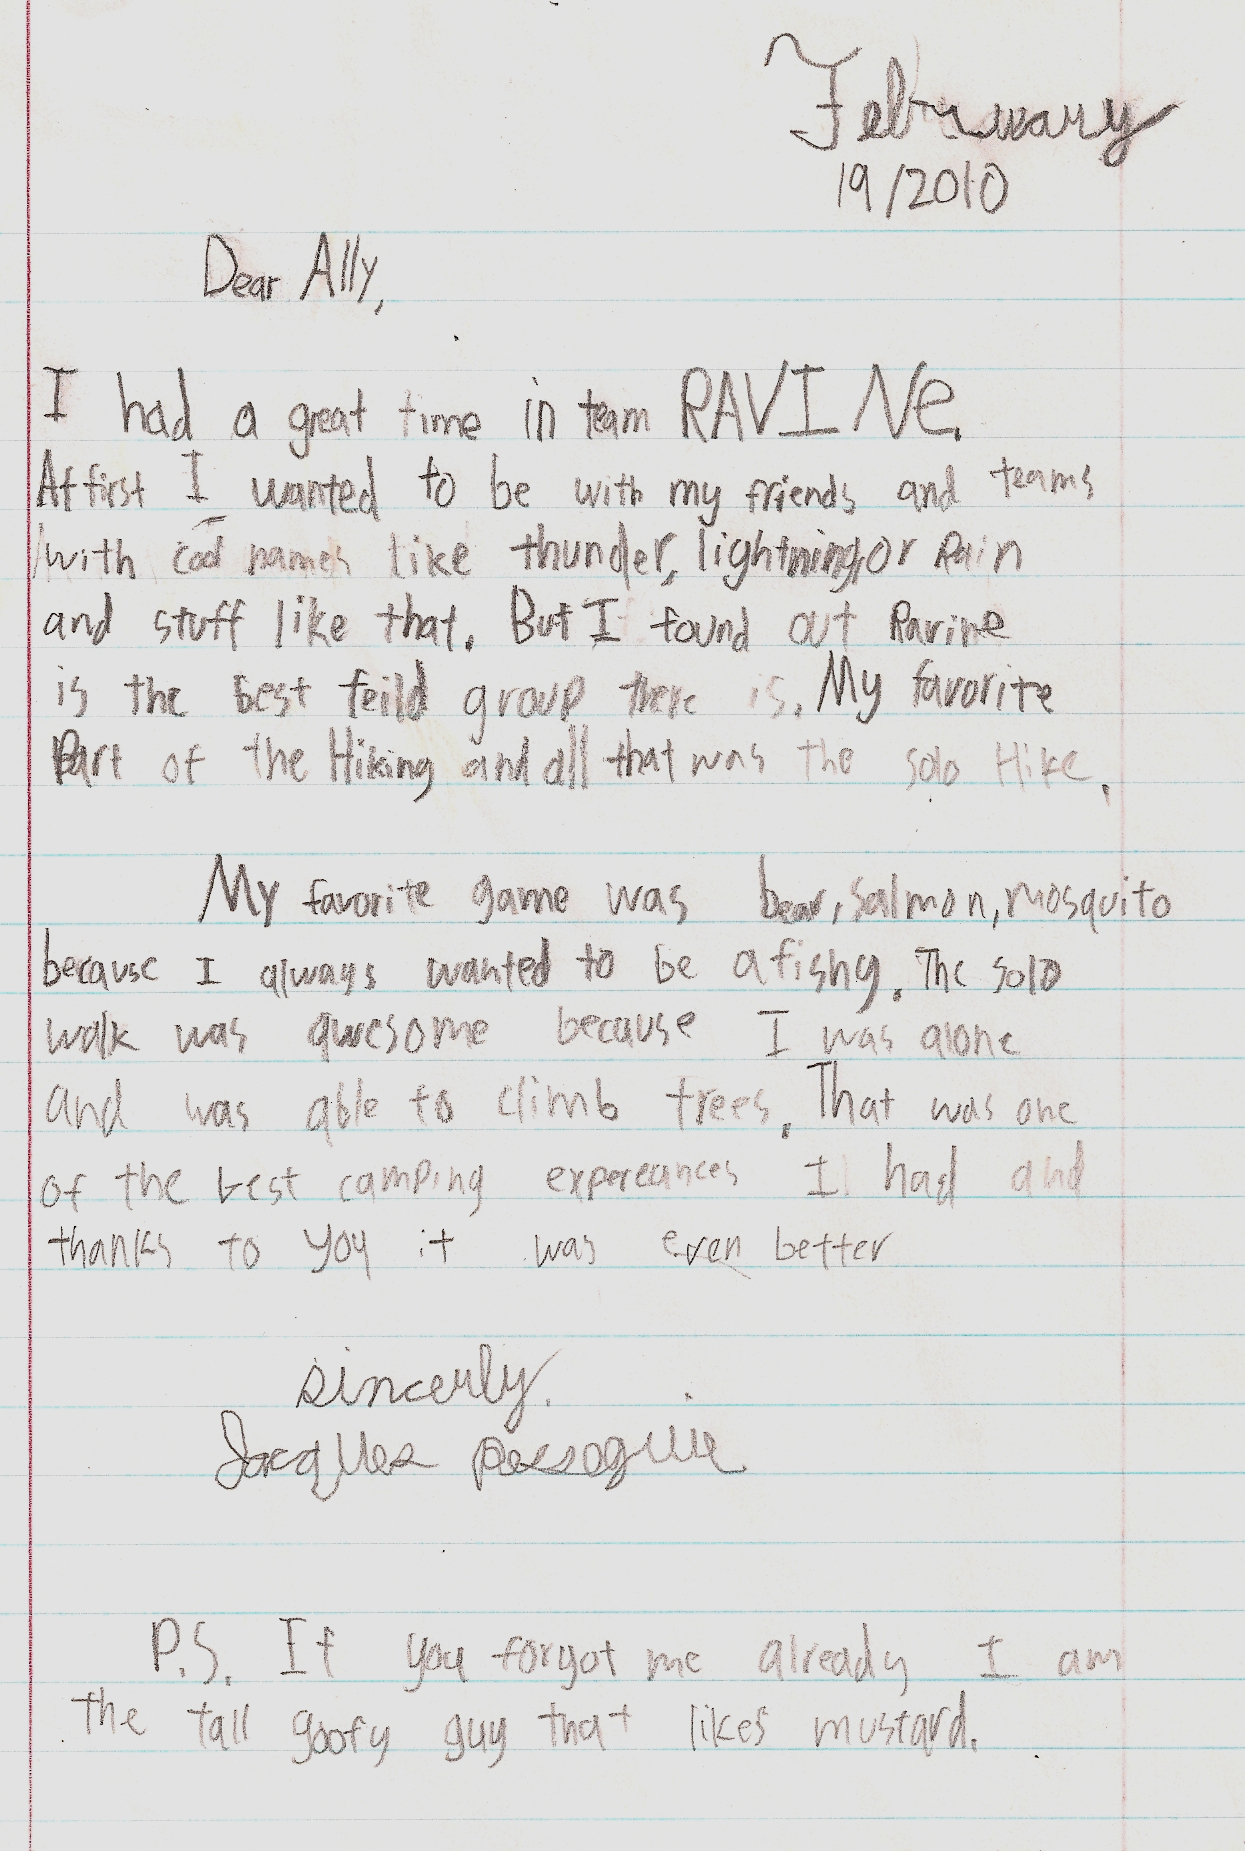 February
19/2010
Dear Ally,
I had a great time in team RAVINe.
At first I wanted to be with my friends and teams
with cool names like thunder, lightning, or Rain
and stuff like that. But I found out Ravine
is the best feild group there is. My favorite
Part of the Hiking and all that was the solo Hike.
My favorite game was bear, salmon, mosquito
because I always wanted to be a fishy. The solo
walk was awesome because I was alone
and was able to climb trees. That was one
of the best camping expereances I had and
thanks to you it was even better
sincerly,
Jacques
P.S. If you forgot me already I am
the tall goofy guy that likes mustard.